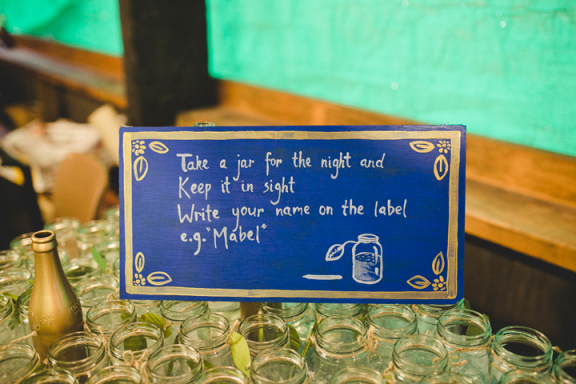 Take a jar for the night and
Keep it in sight
Write your name on the label
e.g. "Mabel"